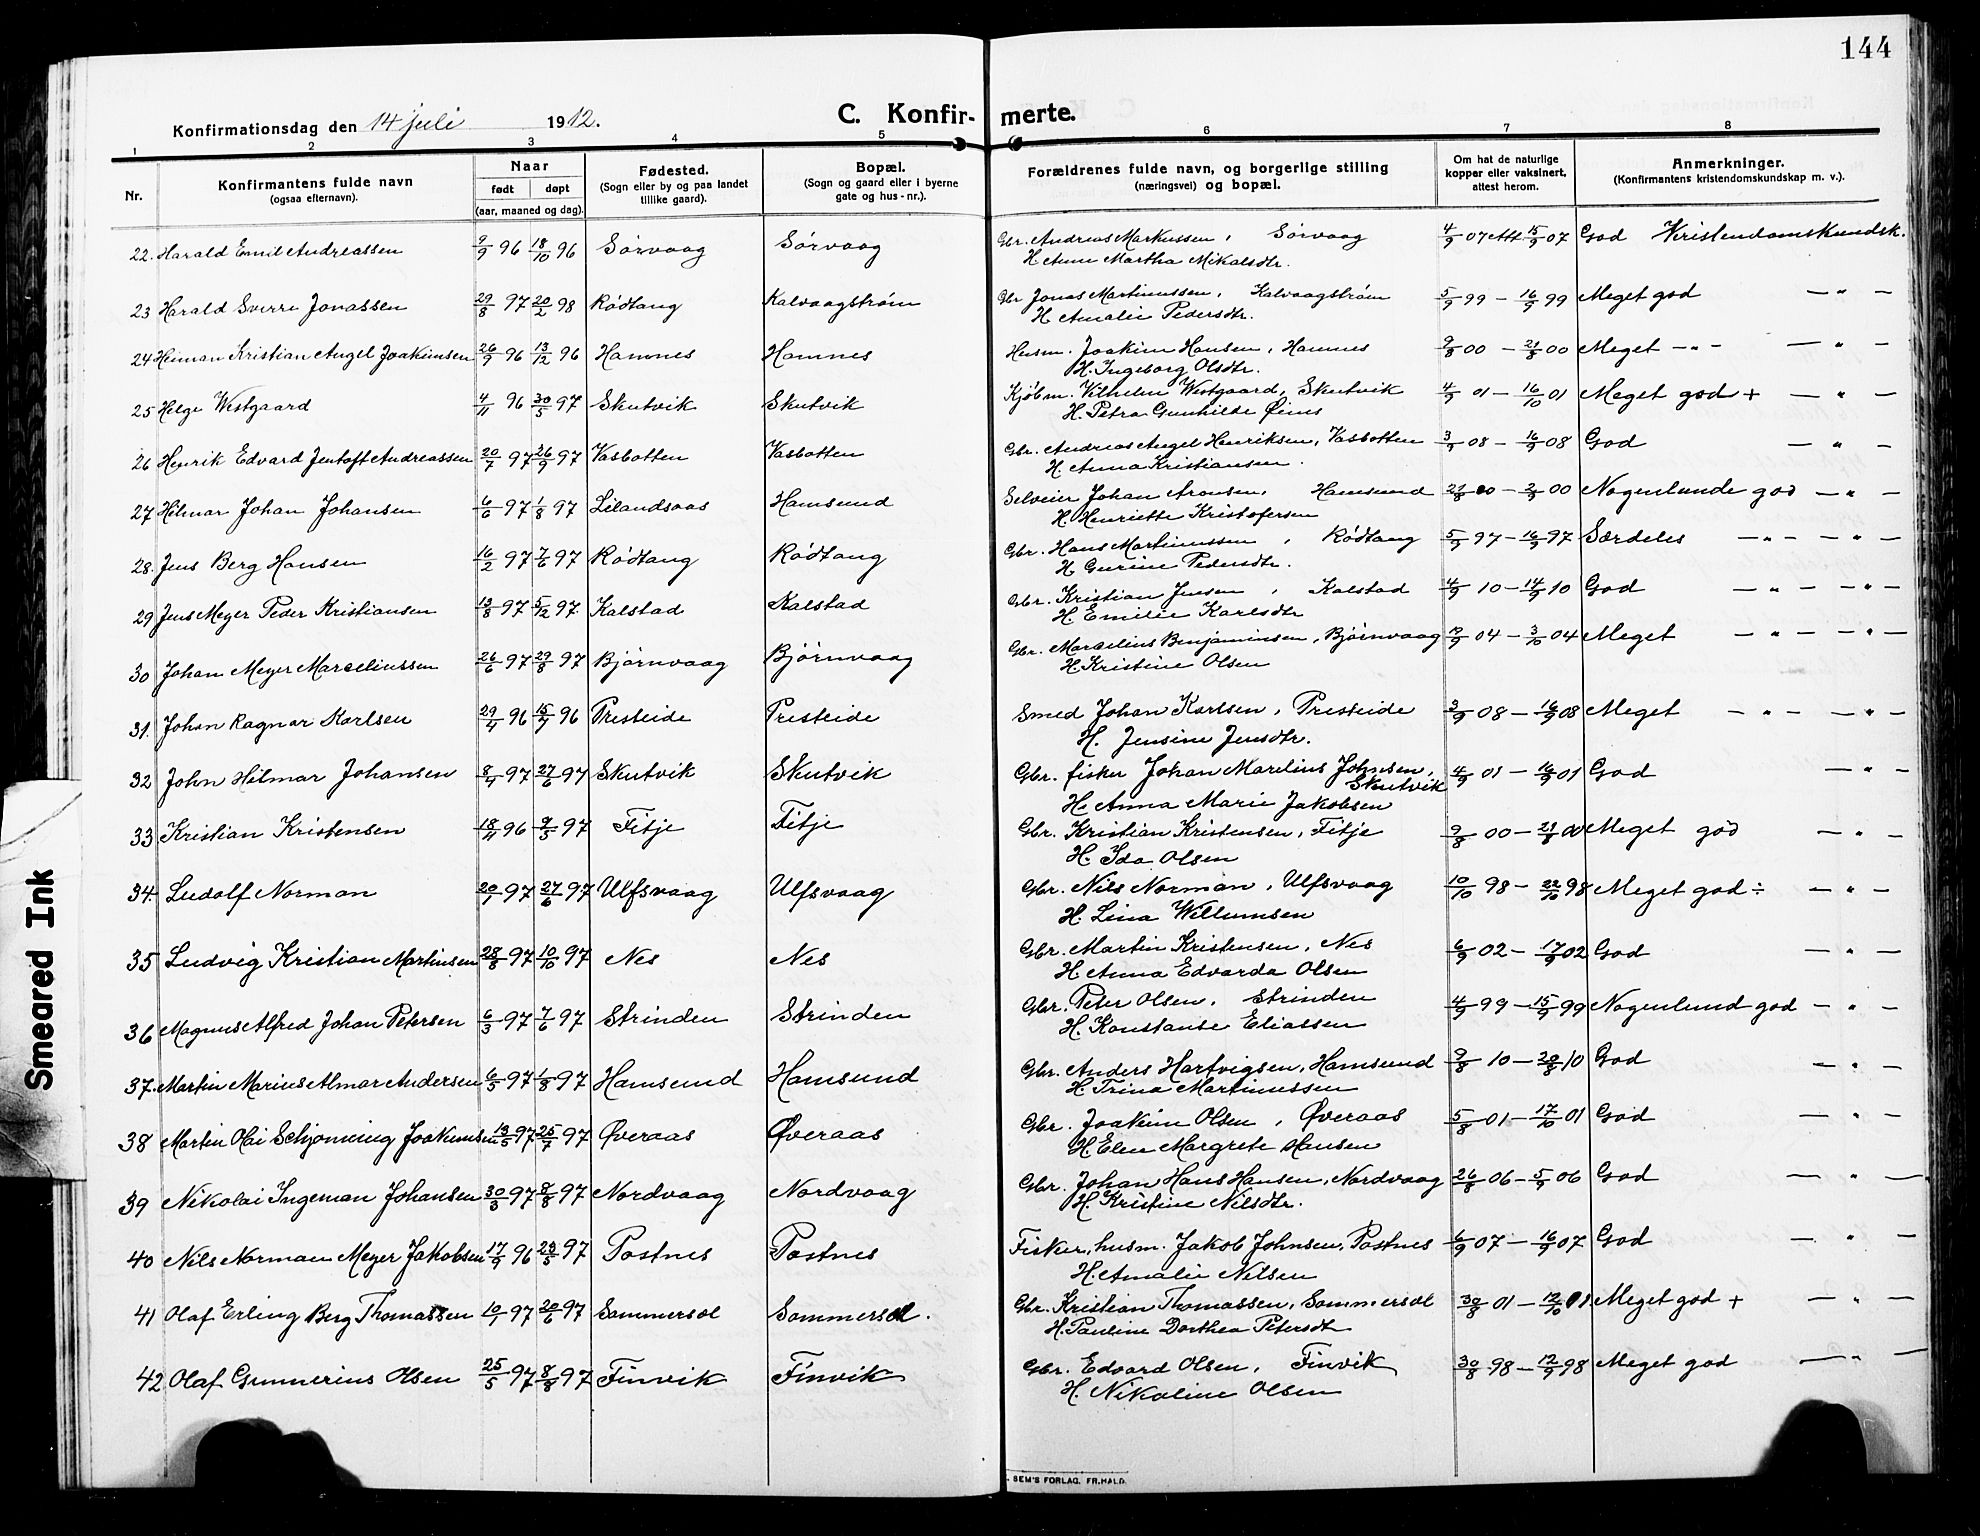 144
Konfirmationsdag den 14 juli 1912.
C. Konfir-merte.
1 2 3 4 5 6 7 8
Nr.
Konfirmantens fulde navn
(ogsaa efternavn).
Naar
født døpt
(aar, maaned og dag).
Fødested.
(Sogn eller by og paa landet
tillike gaard).
Bopæl.
(Sogn og gaard eller i byerne
gate og hus-nr.).
Forældrenes fulde navn, og borgerlige stilling
(næringsvei) og bopæl.
Om hat de naturlige
kopper eller vaksinert,
attest herom.
Anmerkninger.
(Konfirmantens kristendomskundskap m. v.).
22. Harald Emil Andreassen 9/9 96 18/10 96 Sørvaag Sørvaag Gbr. Andreas Markussen, Sørvaag 4/9 07 Att. 15/9 07 God Kristendomskundsk.
H. Anne Martha Mikalsdtr.
23 Harald Sverre Jonassen 29/8 97 20/2 98 Rødtang Kalvaagstrøm Gbr Jonas Martinussen, Kalvaagstrøm 5/9 99 — 16/9 99 Meget god — " —
H. Amalie Pedersdtr.
24 Heiman Kristian Angel Joakimsen 26/9 96 13/12 96 Hamnes Hamnes Husm. Joakim Hansen, Hamnes 9/8 00 — 21/8 00 Meget — " — — " —
H. Ingeborg Olsdtr.
25 Helge Westgaard 4/11 96 30/5 97 Skutvik Skutvik Kjøbm. Vilhelm Westgaard, Skutvik 4/9 01 — 16/10 01 Meget god + — " —
H. Petra Gunhilde Øines
26 Henrik Edvard Jentoft Andreassen 20/7 97 26/9 97 Vasbotten Vasbotten Gbr. Andreas Angel Henriksen, Vasbotten 3/9 08 — 16/9 08 God — " —
H. Anna Kristiansen.
27 Hilmar Johan Johansen 6/6 97 1/8 97 Lilandsaas Hamsund Selveier Johan Aronsen, Hamsund 21/8 00 — 2/9 00 Nogenlunde god — " —
H. Henriette Kristofersen
28. Jens Berg Hansen 16/2 97 7/6 97 Rødtang Rødtang Gbr. Hans Martinussen, Rødtang 5/9 97 — 16/9 97 Særdeles — " — — " —
H. Gurine Pedersdtr.
29 Jens Meyer Peder Kristiansen 13/8 97 5/12 97. Kalstad Kalstad Gbr. Kristian Jensen, Kalstad 4/9 10 — 14/9 10 God — " — — " —
H. Emilie Karlsdtr
30 Johan Meyer Marceliussen 26/6 97 29/8 97 Bjørnvaag Bjørnvaag Gbr. Marcelius Benjaminsen, Bjørnvaag 04 — 3/10 04 Meget — " — — " —
H. Kristine Olsen
31. Johan Ragnar Karlsen 29/4 96 15/7 96 Presteide Presteide Smed Johan Karlsen, Presteide 3/9 08 — 16/9 08 Meget — " — — " —
H. Jensine Jensdtr.
32 John Hilmar Johansen 8/4 97 27/6 97 Skutvik Skutvik Gbr. fisker Johan Marelius Johnsen, 4/9 01 — 16/9 01 God — " —
Skutvik
H. Anna Marie Jakobsen
33 Kristian Kristensen 18/11 96 9/5 97 Fitje Fitje Gbr. Kristian Kristensen, Fitje 9/8 00 — 21/8 00 Meget god — " —
H. Ida Olsen
34. Ludolf Norman 20/1 97 27/6 97 Ulfsvaag Ulfsvaag Gbr. Nils Norman, Ulfsvaag 10/10 98 — 22/10 98 Meget god ÷ — " —
H. Lina Willumsen
35 Ludvig Kristian Martinsen 28/8 97 10/10 97 Nes Nes Gbr. Martin Kristensen, Nes 6/9 02 — 17/9 02 God — " —
H. Anna Edvarda Olsen
36 Magnus Alfred Johan Petersen 6/3 97 7/6 97 Strinden Strinden Gbr. Peter Olsen, Strinden 4/9 99 — 15/9 99 Nogenlund god — " —
H. Konstanse Eliassen
37. Martin Marius Almar Andersen 6/5 97 1/8 97 Hamsund Hamsund Gbr. Anders Hartvigsen, Hamsund 9/8 10 — 20/8 10 God — " —
H. Trina Martinussen
38 Martin Olai Schjonning Joakimsen 13/5 97 25/7 97 Øveraas Øveraas Gbr. Joakim Olsen, Øveraas 5/8 01 — 17/10 01 God — " —
H. Elen Margrete Hansen
39 Nikolai Ingeman Johansen 30/3 97 8/8 97 Nordvaag Nordvaag Gbr. Johan Hans Hansen, Nordvaag 26/8 06 — 5/9 06 God — " —
H. Kristine Nilsdtr.
40 Nils Norman Meyer Jakobsen 17/9 96 23/5 97 Postnes Postnes Fisker, husm. Jakob Johnsen, Postnes 6/9 07 — 16/9 07 God — " —
H. Amalie Nilsen
41 Olaf Erling Berg Thomassen 10/1 97 20/6 97 Sommersel Sommersel. Gbr. Kristian Thomassen, Sommersel 30/8 01 — 12/10 01 Meget god + — " —
H. Pauline Dorthea Petersdtr
42 Olaf Gunnerius Olsen 25/5 97 8/8 97 Finvik Finvik Gbr. Edvard Olsen, Finvik 30/8 98 — 12/9 98 Meget god — " —
H. Nikoline Olsen
SEM'S FORLAG. FR.HALD.
Smeared Ink